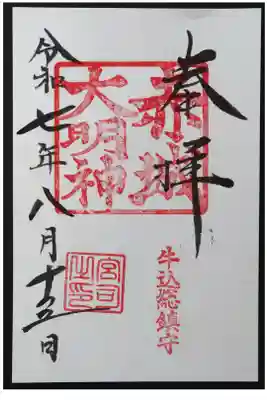 奉拝
赤城
大明神
牛込総鎮守
令和七年八月十五日
宮司
之印